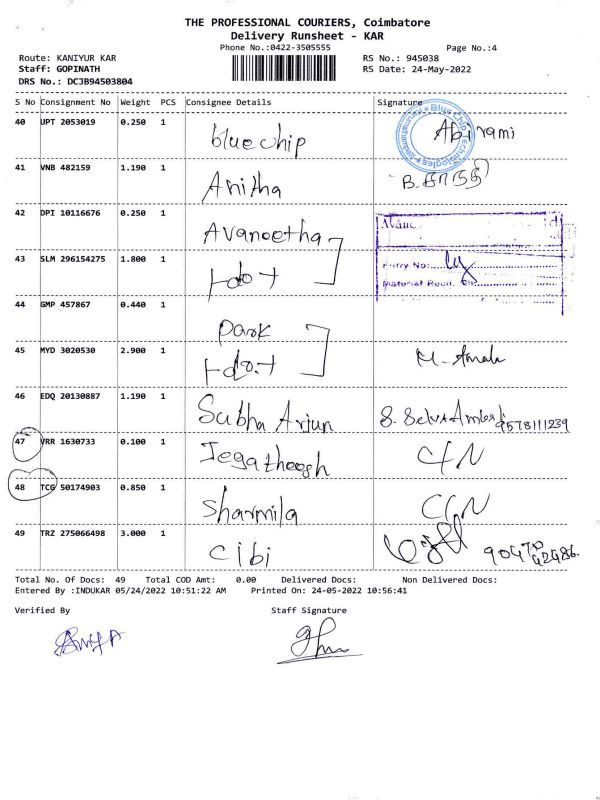 THE PROFESSIONAL COURIERS, Coimbatore
Delivery Runsheet - KAR
Phone No.:0422-3505555 Page No.:4
Route: KANIYUR KAR RS No.: 945038
Staff: GOPINATH RS Date: 24-May-2022
DRS No.: DCJB94503804
S No Consignment No Weight PCS Consignee Details Signature
40 UPT 2053019 0.250 1 blue chip Abirami
41 VNB 482159 1.190 1 Anitha B.
42 DPI 10116676 0.250 1 Avaneetha
Name
43 SLM 296154275 1.800 1 +do+
Entry No:
Material Recd. On:
44 GMP 457867 0.440 1 park
45 MYD 3020530 2.900 1 +do.+ M. Amala
46 EDQ 20130887 1.190 1 Subha Arjun 9578111239
47 VRR 1630733 0.100 1 Jegatheegh C/N
48 TCG 50174903 0.850 1 Sharmila C/N
49 TRZ 275066498 3.000 1 Cibi
Total No. Of Docs: 49 Total COD Amt: 0.00 Delivered Docs: Non Delivered Docs:
Entered By :INDUKAR 05/24/2022 10:51:22 AM Printed On: 24-05-2022 10:56:41
Verified By Staff Signature